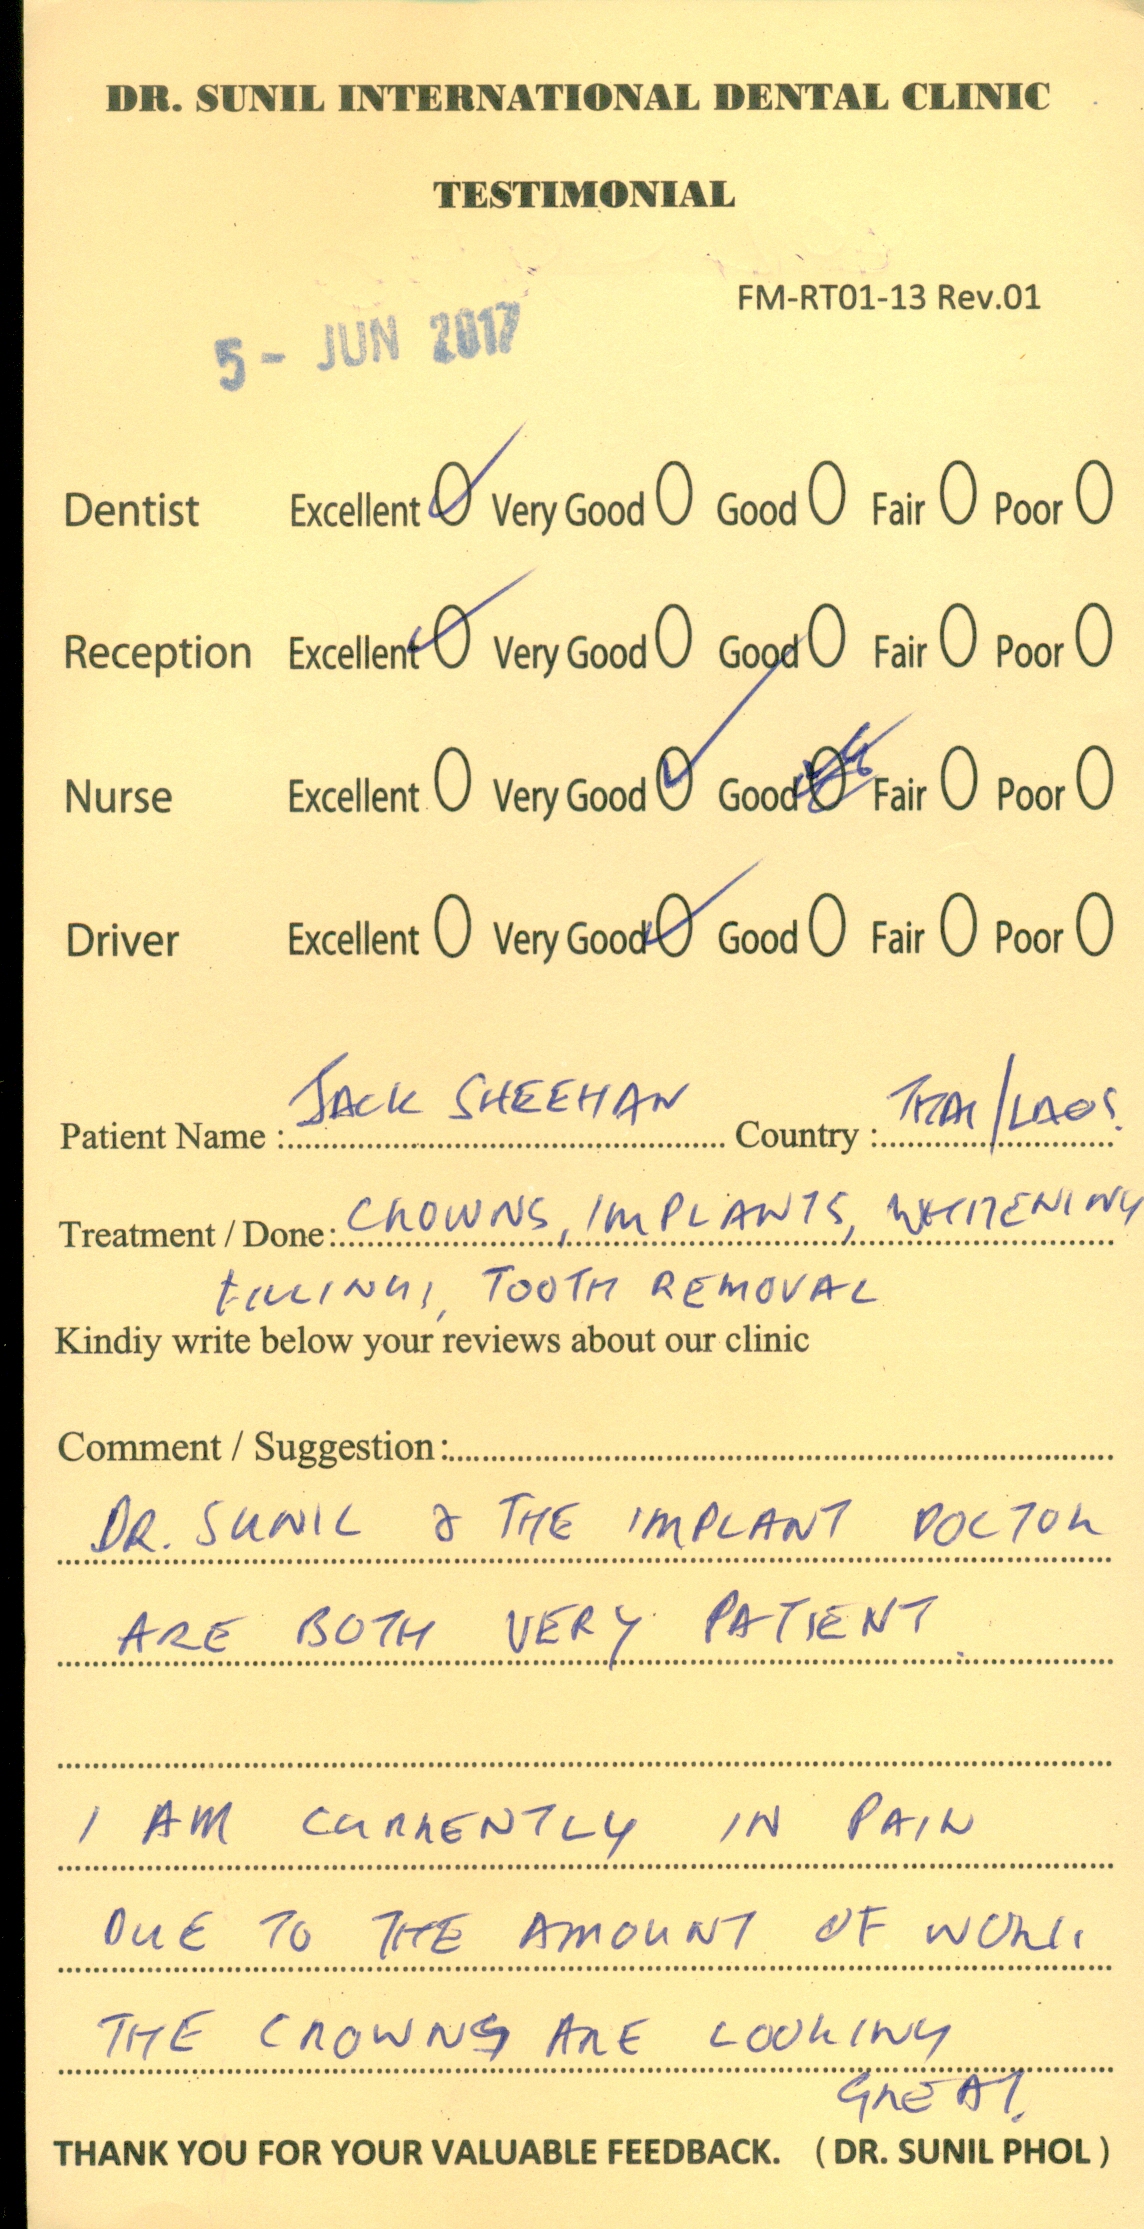 DR. SUNIL INTERNATIONAL DENTAL CLINIC
TESTIMONIAL
FM-RT01-13 Rev.01
5 - JUN 2017
Dentist Excellent Very Good Good Fair Poor
Reception Excellent Very Good Good Fair Poor
Nurse Excellent Very Good Good Fair Poor
Driver Excellent Very Good Good Fair Poor
Patient Name : JACK SHEEHAN Country : THAI/LAOS.
Treatment / Done: CROWNS, IMPLANTS, WHITENING
FILLINGS, TOOTH REMOVAL
Kindiy write below your reviews about our clinic
Comment / Suggestion:
DR. SUNIL & THE IMPLANT DOCTOR
ARE BOTH VERY PATIENT.
I AM CURRENTLY IN PAIN
DUE TO THE AMOUNT OF WORK.
THE CROWNS ARE LOOKING
GREAT.
THANK YOU FOR YOUR VALUABLE FEEDBACK. ( DR. SUNIL PHOL )